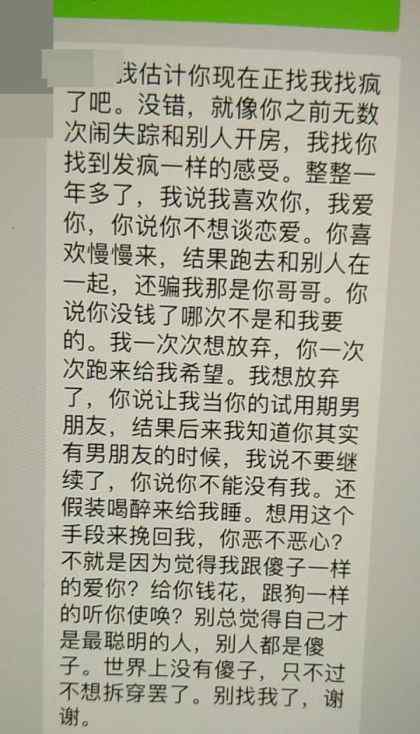 我估计你现在正找我找疯
了吧。没错，就像你之前无数
次闹失踪和别人开房，我找你
找到发疯一样的感受。整整一
年多了，我说我喜欢你，我爱
你，你说你不想谈恋爱。你喜
欢慢慢来，结果跑去和别人在
一起，还骗我那是你哥哥。你
说你没钱了哪次不是和我要
的。我一次次想放弃，你一次
次跑来给我希望。我想放弃
了，你说让我当你的试用期男
朋友，结果后来我知道你其实
有男朋友的时候，我说不要继
续了，你说你不能没有我。还
假装喝醉来给我睡。想用这个
手段来挽回我，你恶不恶心？
不就是因为觉得我跟傻子一样
的爱你？给你钱花，跟狗一样
的听你使唤？别总觉得自己才
是最聪明的人，别人都是傻
子。世界上没有傻子，只不过
不想拆穿罢了。别找我了，谢
谢。